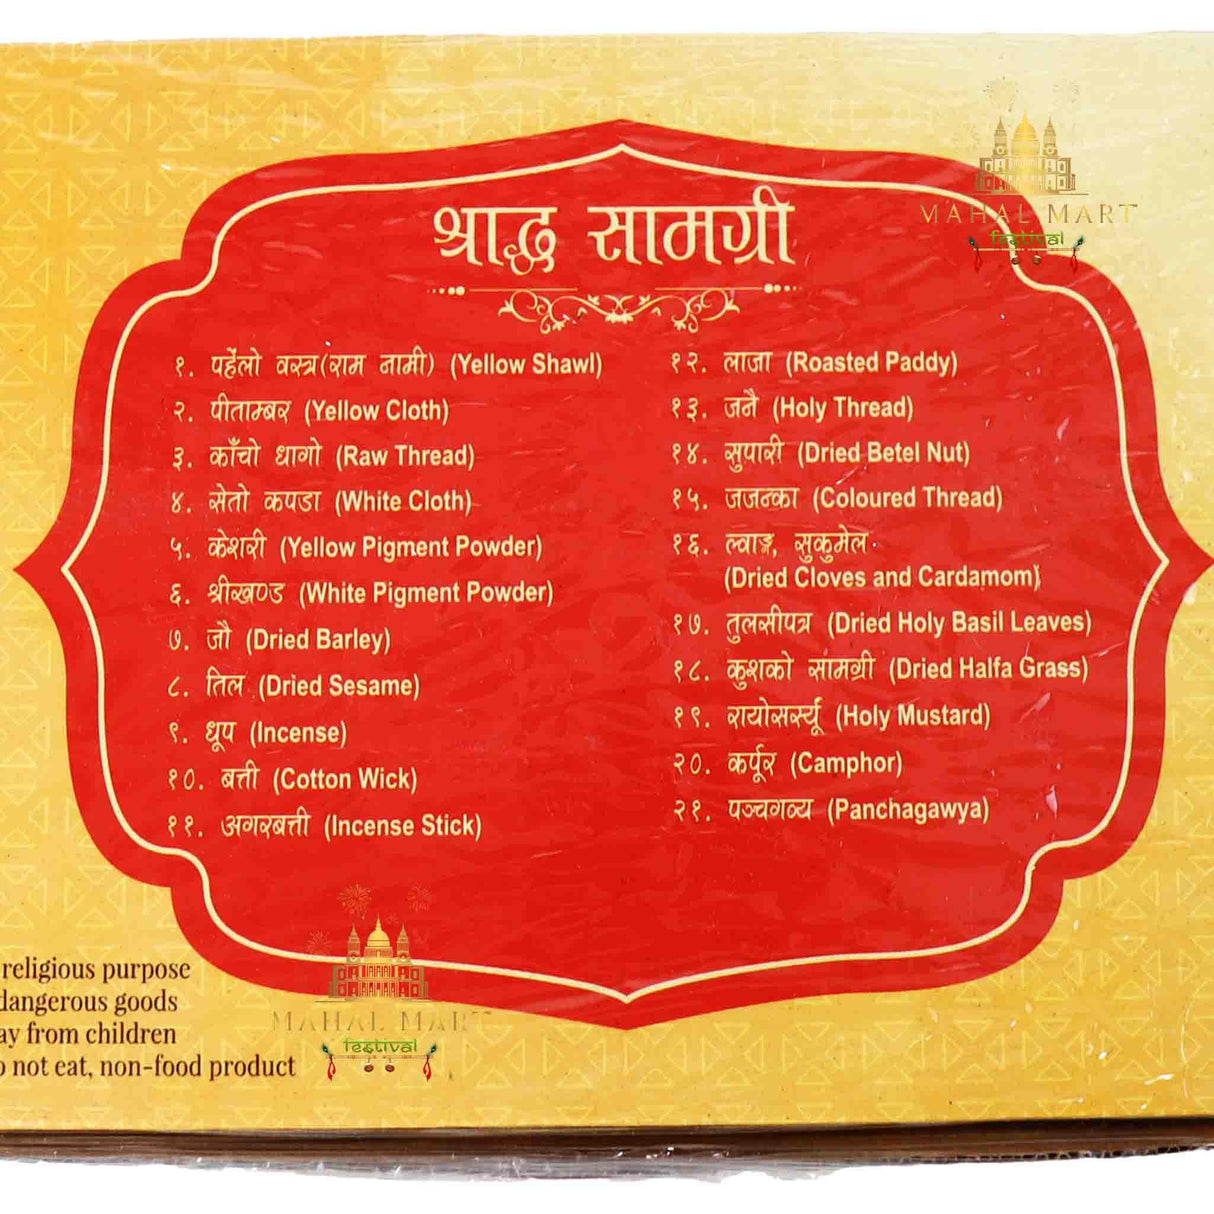 श्राद्ध सामग्री
१. पहेँलो वस्त्र(राम नामी) (Yellow Shawl)
२. पीताम्बर (Yellow Cloth)
३. काँचो धागो (Raw Thread)
४. सेतो कपडा (White Cloth)
५. केशरी (Yellow Pigment Powder)
६. श्रीखण्ड (White Pigment Powder)
७. जौ (Dried Barley)
८. तिल (Dried Sesame)
९. धूप (Incense)
१०. बत्ती (Cotton Wick)
११. अगरबत्ती (Incense Stick)
१२. लाजा (Roasted Paddy)
१३. जनै (Holy Thread)
१४. सुपारी (Dried Betel Nut)
१५. जजन्का (Coloured Thread)
१६. ल्वाङ्ग, सुकुमेल
(Dried Cloves and Cardamom)
१७. तुलसीपत्र (Dried Holy Basil Leaves)
१८. कुशको सामग्री (Dried Halfa Grass)
१९. रायोसर्स्यू (Holy Mustard)
२०. कर्पूर (Camphor)
२१. पञ्चगव्य (Panchagawya)
religious purpose
dangerous goods
ay from children
o not eat, non-food product
MAHAL MART
festival
MAHAL MART
festival